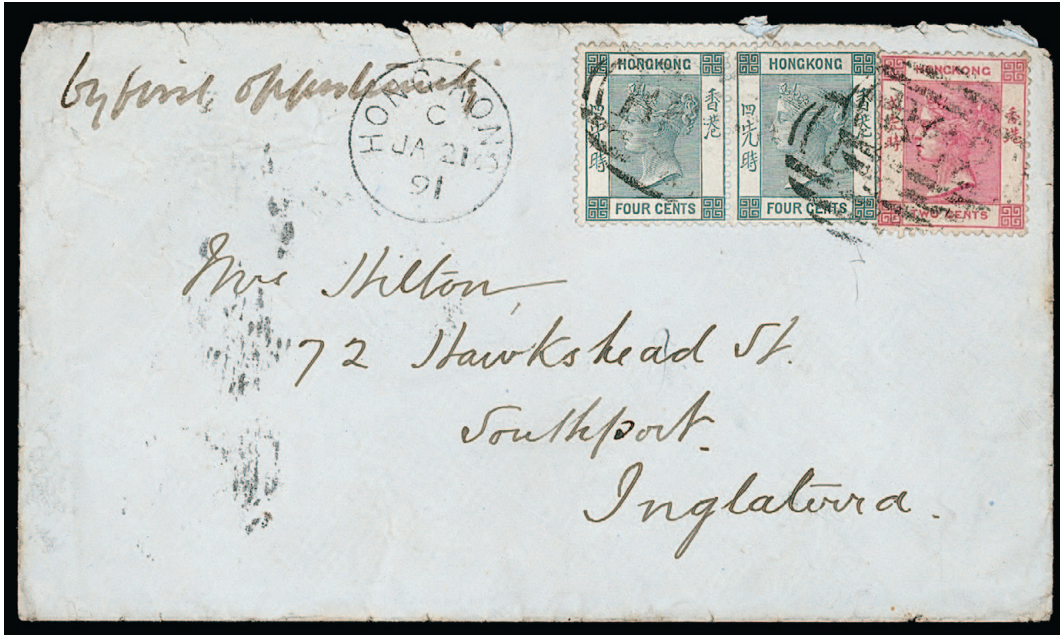 by first opportunity
HONG KONG
C
JA 21
91
HONGKONG
香港
四先時
FOUR CENTS
HONGKONG
香港
四先時
FOUR CENTS
HONGKONG
香港
TWO CENTS
Mrs Hilton
72 Hawkshead St.
Southport.
Inglaterra.